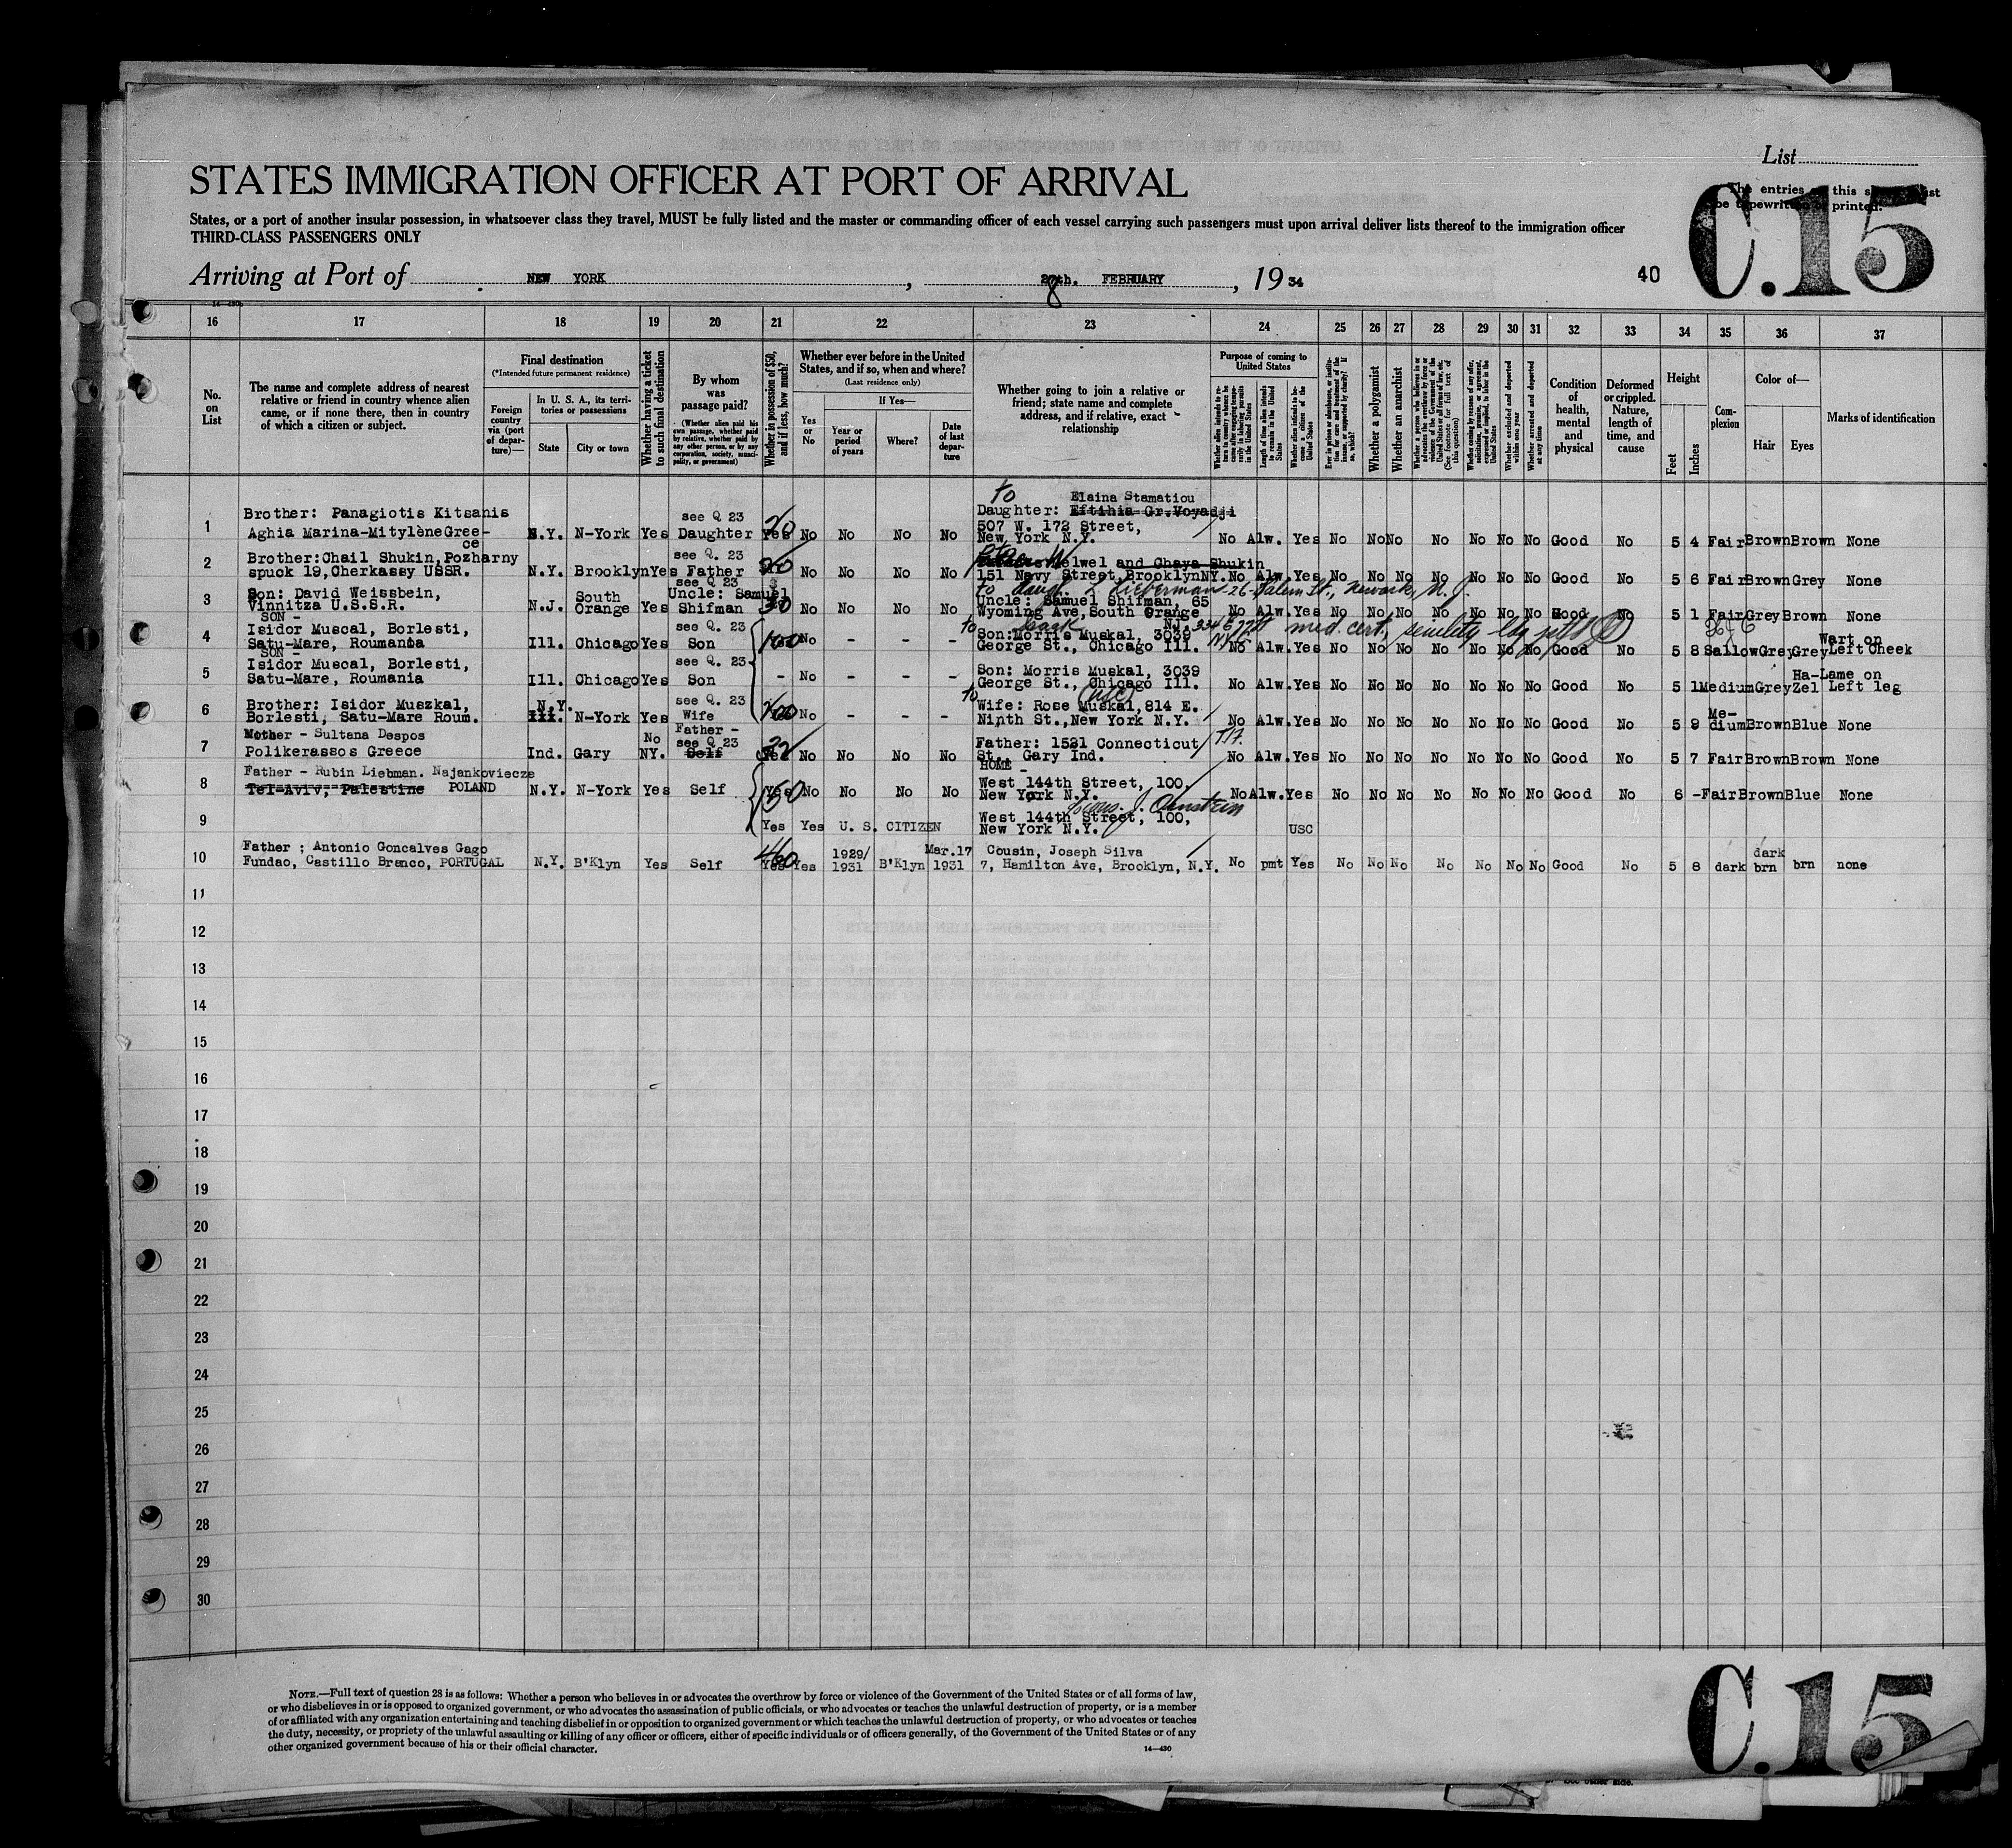 List
STATES IMMIGRATION OFFICER AT PORT OF ARRIVAL
The entries this
be typewritten printed.
C.15
States, or a port of another insular possession, in whatsoever class they travel, MUST be fully listed and the master or commanding officer of each vessel carrying such passengers must upon arrival deliver lists thereof to the immigration officer
THIRD-CLASS PASSENGERS ONLY
Arriving at Port of NEW YORK, 28th. FEBRUARY, 19 34
40
16 17 18 19 20 21 22 23 24 25 26 27 28 29 30 31 32 33 34 35 36 37
No. on List
The name and complete address of nearest relative or friend in country whence alien came, or if none there, then in country of which a citizen or subject.
Final destination
(*Intended future permanent residence)
Foreign country via (port of departure)—
In U. S. A., its territories or possessions
State
City or town
Whether having a ticket to such final destination
By whom was passage paid?
(Whether alien paid his own passage, whether paid by relative, whether paid by any other person, or by any corporation, society, municipality, or government)
Whether in possession of $50, and if less, how much?
Whether ever before in the United States, and if so, when and where?
(Last residence only)
Yes or No
If Yes—
Year or period of years
Where?
Date of last departure
Whether going to join a relative or friend; state name and complete address, and if relative, exact relationship
Purpose of coming to United States
Whether alien intends to return to country whence he came after engaging temporarily in laboring pursuits in the United States
Length of time alien intends to remain in the United States
Whether alien intends to become a citizen of the United States
Ever in prison or almshouse, or institution for care and treatment of the insane, or supported by charity? If so, which?
Whether a polygamist
Whether an anarchist
Whether a person who believes in or advocates the overthrow by force or violence of the Government of the United States or all forms of law, etc. (See footnote for full text of this question)
Whether coming by reason of any offer, solicitation, promise, or agreement, expressed or implied, to labor in the United States
Whether excluded and deported within one year
Whether arrested and deported at any time
Condition of health, mental and physical
Deformed or crippled. Nature, length of time, and cause
Height
Feet
Inches
Complexion
Color of—
Hair
Eyes
Marks of identification
to Elaina Stamatiou
1 Brother: Panagiotis Kitsanis see Q 23 20 Daughter: Eftihia Gr.Voyadji
Aghia Marina-Mitylène Greece N.Y. N-York Yes Daughter Yes No No No No 507 W. 172 Street, New York N.Y. No Alw. Yes No No No No No No No Good No 5 4 Fair Brown Brown None
2 Brother:Chail Shukin,Pozharny see Q. 23 Welwel and Chaya Shukin
spuck 19,Cherkassy USSR. N.Y. Brooklyn Yes Father No No No No 151 Navy Street,Brooklyn NY. No Alw. Yes No No No No No No No Good No 5 6 Fair Brown Grey None
to daugt. Lieberman 26 Salem St., Newark, N.J.
3 Son: David Weissbein, South see Q 23 Uncle: Samuel 30 Uncle: Samuel Shifman, 65
Vinnitza U.S.S.R. N.J. Orange Yes Shifman No No No No Wyoming Ave,South Orange NJ. No Alw. Yes No No No No No No No Good No 5 1 Fair Grey Brown None
SON -
to 334 E 77st med. cert., senility
4 Isidor Muscal, Borlesti, see Q. 23 Son:Morris Muskal, 3039
Satu-Mare, Roumania Ill. Chicago Yes Son 100 No - - - George St., Chicago Ill. NYC No Alw. Yes No No No No No No No Good No 5 8 Sallow Grey Grey Wart on Left Cheek
SON -
5 Isidor Muscal, Borlesti, see Q. 23 Son: Morris Muskal, 3039
Satu-Mare, Roumania Ill. Chicago Yes Son - No - - - George St., Chicago Ill. No Alw. Yes No No No No No No No Good No 5 1 Medium Grey Ha-Zel Lame on Left leg
to (USC)
6 Brother: Isidor Muszkal, N.Y. see Q. 23 Wife: Rose Muskal,814 E.
Borlesti, Satu-Mare Roum. Ill. N-York Yes Wife No - - - Ninth St.,New York N.Y. No Alw. Yes No No No No No No No Good No 5 9 Medium Brown Blue None
7 Mother - Sultana Despos No Father - see Q 23 22 Father: 1521 Connecticut
Polikerassos Greece Ind. Gary NY. Self Yes No No No No St., Gary Ind. No Alw. Yes No No No No No No No Good No 5 7 Fair Brown Brown None
HOME -
8 Father - Rubin Liebman. Najankoviecze West 144th Street, 100,
Tel-Aviv, Palestine POLAND N.Y. N-York Yes Self Yes 50 No No No No New York N.Y. No Alw. Yes No No No No No No No Good No 6 - Fair Brown Blue None
9 Yes Yes U. S. CITIZEN West 144th Street, 100, New York N.Y. USC
10 Father ; Antonio Goncalves Gago 1929/ Mar.17 Cousin, Joseph Silva dark
Fundao, Castillo Branco, PORTUGAL N.Y. B'Klyn Yes Self Yes Yes 1931 B'Klyn 1931 7, Hamilton Ave, Brooklyn, N.Y. No pmt Yes No No No No No No No Good No 5 8 dark brn brn none
11
12
13
14
15
16
17
18
19
20
21
22
23
24
25
26
27
28
29
30
NOTE.—Full text of question 28 is as follows: Whether a person who believes in or advocates the overthrow by force or violence of the Government of the United States or of all forms of law,
or who disbelieves in or is opposed to organized government, or who advocates the assassination of public officials, or who advocates or teaches the unlawful destruction of property, or is a member
of or affiliated with any organization entertaining and teaching disbelief in or opposition to organized government or which teaches the unlawful destruction of property, or who advocates or teaches
the duty, necessity, or propriety of the unlawful assaulting or killing of any officer or officers, either of specific individuals or of officers generally, of the Government of the United States or of any
other organized government because of his or their official character.
14—430
C.15